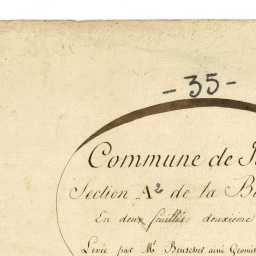 - 35 -
Commune de
Section A2 de la
En deux feuilles deuxième
Levée par Mr. Beuschet ainé